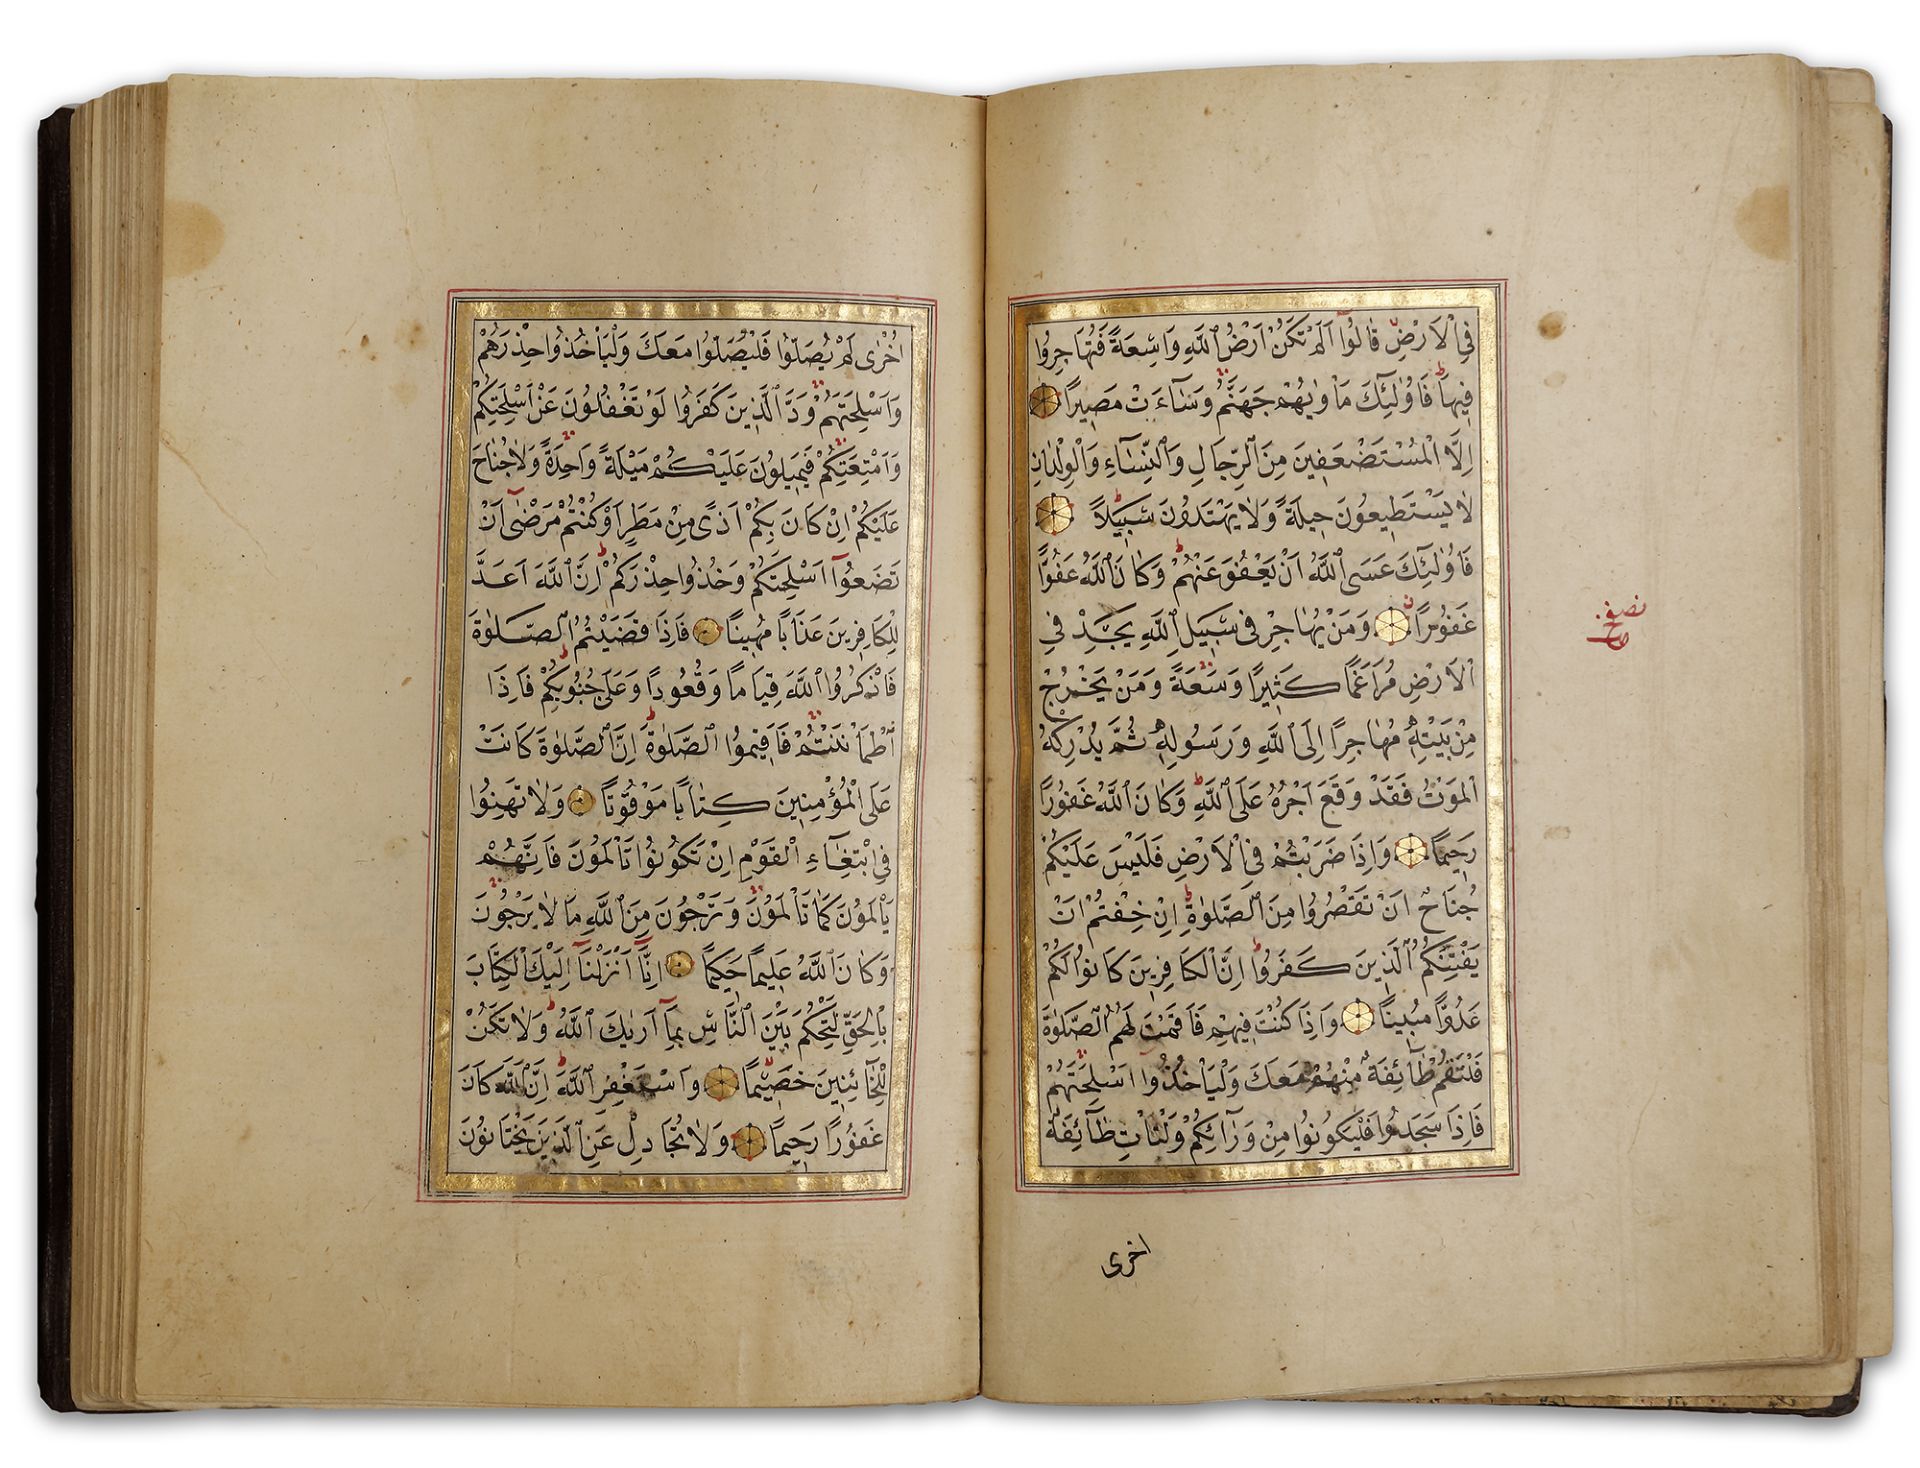 فِي الْاَرْضِ قَالُوا اَلَمْ تَكُنْ اَرْضُ اللّٰهِ وَاسِعَةً فَتُهَاجِرُوا
فِيهَا فَاُولٰئِكَ مَاْوٰيهُمْ جَهَنَّمُ وَسَآءَتْ مَصِيرًا
اِلَّا الْمُسْتَضْعَفِينَ مِنَ الرِّجَالِ وَالنِّسَآءِ وَالْوِلْدَانِ
لَا يَسْتَطِيعُونَ حِيلَةً وَلَا يَهْتَدُونَ سَبِيلًا
فَاُولٰئِكَ عَسَى اللّٰهُ اَنْ يَعْفُوَ عَنْهُمْ وَكَانَ اللّٰهُ عَفُوًّا
غَفُورًا وَمَنْ يُهَاجِرْ فِي سَبِيلِ اللّٰهِ يَجِدْ فِي
الْاَرْضِ مُرَاغَمًا كَثِيرًا وَسَعَةً وَمَنْ يَخْرُجْ
مِنْ بَيْتِهِ مُهَاجِرًا اِلَى اللّٰهِ وَرَسُولِهِ ثُمَّ يُدْرِكْهُ
الْمَوْتُ فَقَدْ وَقَعَ اَجْرُهُ عَلَى اللّٰهِ وَكَانَ اللّٰهُ غَفُورًا
رَحِيمًا وَاِذَا ضَرَبْتُمْ فِي الْاَرْضِ فَلَيْسَ عَلَيْكُمْ
جُنَاحٌ اَنْ تَقْصُرُوا مِنَ الصَّلٰوةِ اِنْ خِفْتُمْ اَنْ
يَفْتِنَكُمُ الَّذِينَ كَفَرُوا اِنَّ الْكَافِرِينَ كَانُوا لَكُمْ
عَدُوًّا مُبِينًا وَاِذَا كُنْتَ فِيهِمْ فَاَقَمْتَ لَهُمُ الصَّلٰوةَ
فَلْتَقُمْ طَآئِفَةٌ مِنْهُمْ مَعَكَ وَلْيَاْخُذُوا اَسْلِحَتَهُمْ
فَاِذَا سَجَدُوا فَلْيَكُونُوا مِنْ وَرَآئِكُمْ وَلْتَاْتِ طَآئِفَةٌ
اخرى
نصف
اُخْرٰى لَمْ يُصَلُّوا فَلْيُصَلُّوا مَعَكَ وَلْيَاْخُذُوا حِذْرَهُمْ
وَاَسْلِحَتَهُمْ وَدَّ الَّذِينَ كَفَرُوا لَوْ تَغْفُلُونَ عَنْ اَسْلِحَتِكُمْ
وَاَمْتِعَتِكُمْ فَيَمِيلُونَ عَلَيْكُمْ مَيْلَةً وَاحِدَةً وَلَا جُنَاحَ
عَلَيْكُمْ اِنْ كَانَ بِكُمْ اَذًى مِنْ مَطَرٍ اَوْ كُنْتُمْ مَرْضٰى اَنْ
تَضَعُوا اَسْلِحَتَكُمْ وَخُذُوا حِذْرَكُمْ اِنَّ اللّٰهَ اَعَدَّ
لِلْكَافِرِينَ عَذَابًا مُهِينًا فَاِذَا قَضَيْتُمُ الصَّلٰوةَ
فَاذْكُرُوا اللّٰهَ قِيَامًا وَقُعُودًا وَعَلٰى جُنُوبِكُمْ فَاِذَا
اطْمَاْنَنْتُمْ فَاَقِيمُوا الصَّلٰوةَ اِنَّ الصَّلٰوةَ كَانَتْ
عَلَى الْمُؤْمِنِينَ كِتَابًا مَوْقُوتًا وَلَا تَهِنُوا
فِي ابْتِغَآءِ الْقَوْمِ اِنْ تَكُونُوا تَاْلَمُونَ فَاِنَّهُمْ
يَاْلَمُونَ كَمَا تَاْلَمُونَ وَتَرْجُونَ مِنَ اللّٰهِ مَا لَا يَرْجُونَ
وَكَانَ اللّٰهُ عَلِيمًا حَكِيمًا اِنَّآ اَنْزَلْنَآ اِلَيْكَ الْكِتَابَ
بِالْحَقِّ لِتَحْكُمَ بَيْنَ النَّاسِ بِمَآ اَرٰيكَ اللّٰهُ وَلَا تَكُنْ
لِلْخَآئِنِينَ خَصِيمًا وَاسْتَغْفِرِ اللّٰهَ اِنَّ اللّٰهَ كَانَ
غَفُورًا رَحِيمًا وَلَا تُجَادِلْ عَنِ الَّذِينَ يَخْتَانُونَ